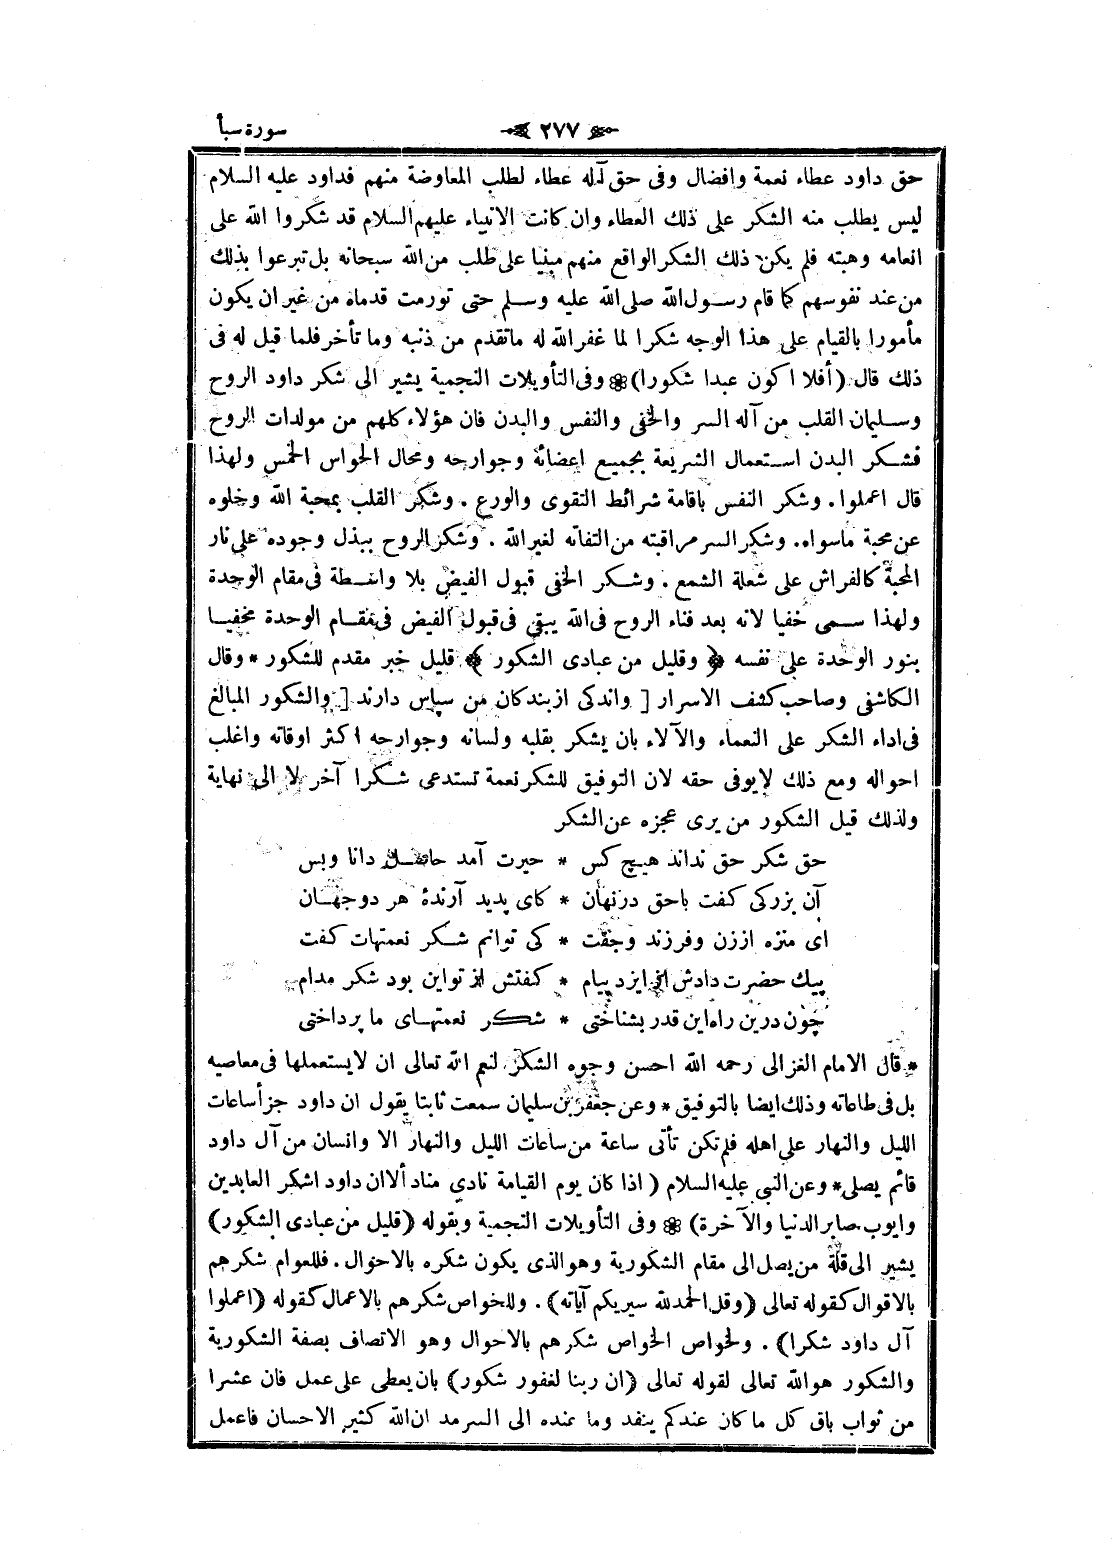 سورة سبأ
٢٧٧
حق داود عطاء نعمة وافضال وفى حق آله عطاء لطلب المعاوضة منهم فداود عليه السلام
ليس يطلب منه الشكر على ذلك العطاء وان كانت الانبياء عليهم السلام قد شكروا الله على
انعامه وهبته فلم يكن ذلك الشكر الواقع منهم مبنيا على طلب من الله سبحانه بل تبرعوا بذلك
من عند نفوسهم كما قام رسول الله صلى الله عليه وسلم حتى تورمت قدماه من غير ان يكون
مأمورا بالقيام على هذا الوجه شكرا لما غفر الله له ما تقدم من ذنبه وما تأخر فلما قيل له فى
ذلك قال (أفلا اكون عبدا شكورا) ❁ وفى التأويلات النجمية يشير الى شكر داود الروح
وسليمان القلب من آله السر والخفى والنفس والبدن فان هؤلاء كلهم من مولدات الروح
فشكر البدن استعمال الشريعة بجميع اعضائه وجوارحه ومحال الحواس الخمس ولهذا
قال اعملوا . وشكر النفس باقامة شرائط التقوى والورع . وشكر القلب بمحبة الله وخلوه
عن محبة ماسواه . وشكر السر مراقبته من التفاته لغير الله . وشكر الروح ببذل وجوده على نار
المحبة كالفراش على شعلة الشمع . وشكر الخفى قبول الفيض بلا واسطة فى مقام الوحدة
ولهذا سمى خفيا لانه بعد فناء الروح فى الله يبقى فى قبول الفيض فى مقام الوحدة مخفيا
بنور الوحدة على نفسه ﴿ وقليل من عبادى الشكور ﴾ قليل خبر مقدم للشكور * وقال
الكاشفى وصاحب كشف الاسرار [ واندكى از بندكان من سپاس دارند ] والشكور المبالغ
فى اداء الشكر على النعماء والآلاء بان يشكر بقلبه ولسانه وجوارحه اكثر اوقاته واغلب
احواله ومع ذلك لا يوفى حقه لان التوفيق للشكر نعمة تستدعى شكرا آخر لا الى نهاية
ولذلك قيل الشكور من يرى عجزه عن الشكر
حق شكر حق نداند هيچ كس * حيرت آمد حاصل دانا وبس
آن بزركى كفت باحق در نهان * كاى پديد آرندۀ هر دو جهان
اى منزه از زن وفرزند وجفت * كى توانم شكر نعمتهات كفت
پيك حضرت دادش از ايزد پيام * كفتش از تو اين بود شكر مدام
چون درين راه اين قدر بشناختى * شكر نعمتهاى ما پرداختى
* قال الامام الغزالى رحمه الله احسن وجوه الشكر لنعم الله تعالى ان لا يستعملها فى معاصيه
بل فى طاعاته وذلك ايضا بالتوفيق * وعن جعفر بن سليمان سمعت ثابتا يقول ان داود جزأ ساعات
الليل والنهار على اهله فلم تكن تأتى ساعة من ساعات الليل والنهار الا وانسان من آل داود
قائم يصلى * وعن النبى عليه السلام ( اذا كان يوم القيامة نادى مناد ألا ان داود اشكر العابدين
وايوب صابر الدنيا والآخرة ) ❁ وفى التأويلات النجمية وبقوله (قليل من عبادى الشكور)
يشير الى قلة من يصل الى مقام الشكورية وهو الذى يكون شكره بالاحوال . فللعوام شكرهم
بالاقوال كقوله تعالى (وقل الحمد لله سيريكم آياته) . وللخواص شكرهم بالاعمال كقوله (اعملوا
آل داود شكرا) . ولخواص الخواص شكرهم بالاحوال وهو الاتصاف بصفة الشكورية
والشكور هو الله تعالى لقوله تعالى (ان ربنا لغفور شكور) بان يعطى على عمل فان عشرا
من ثواب باق كل ما كان عندكم ينفد وما عنده الى السرمد ان الله كثير الاحسان فاعمل